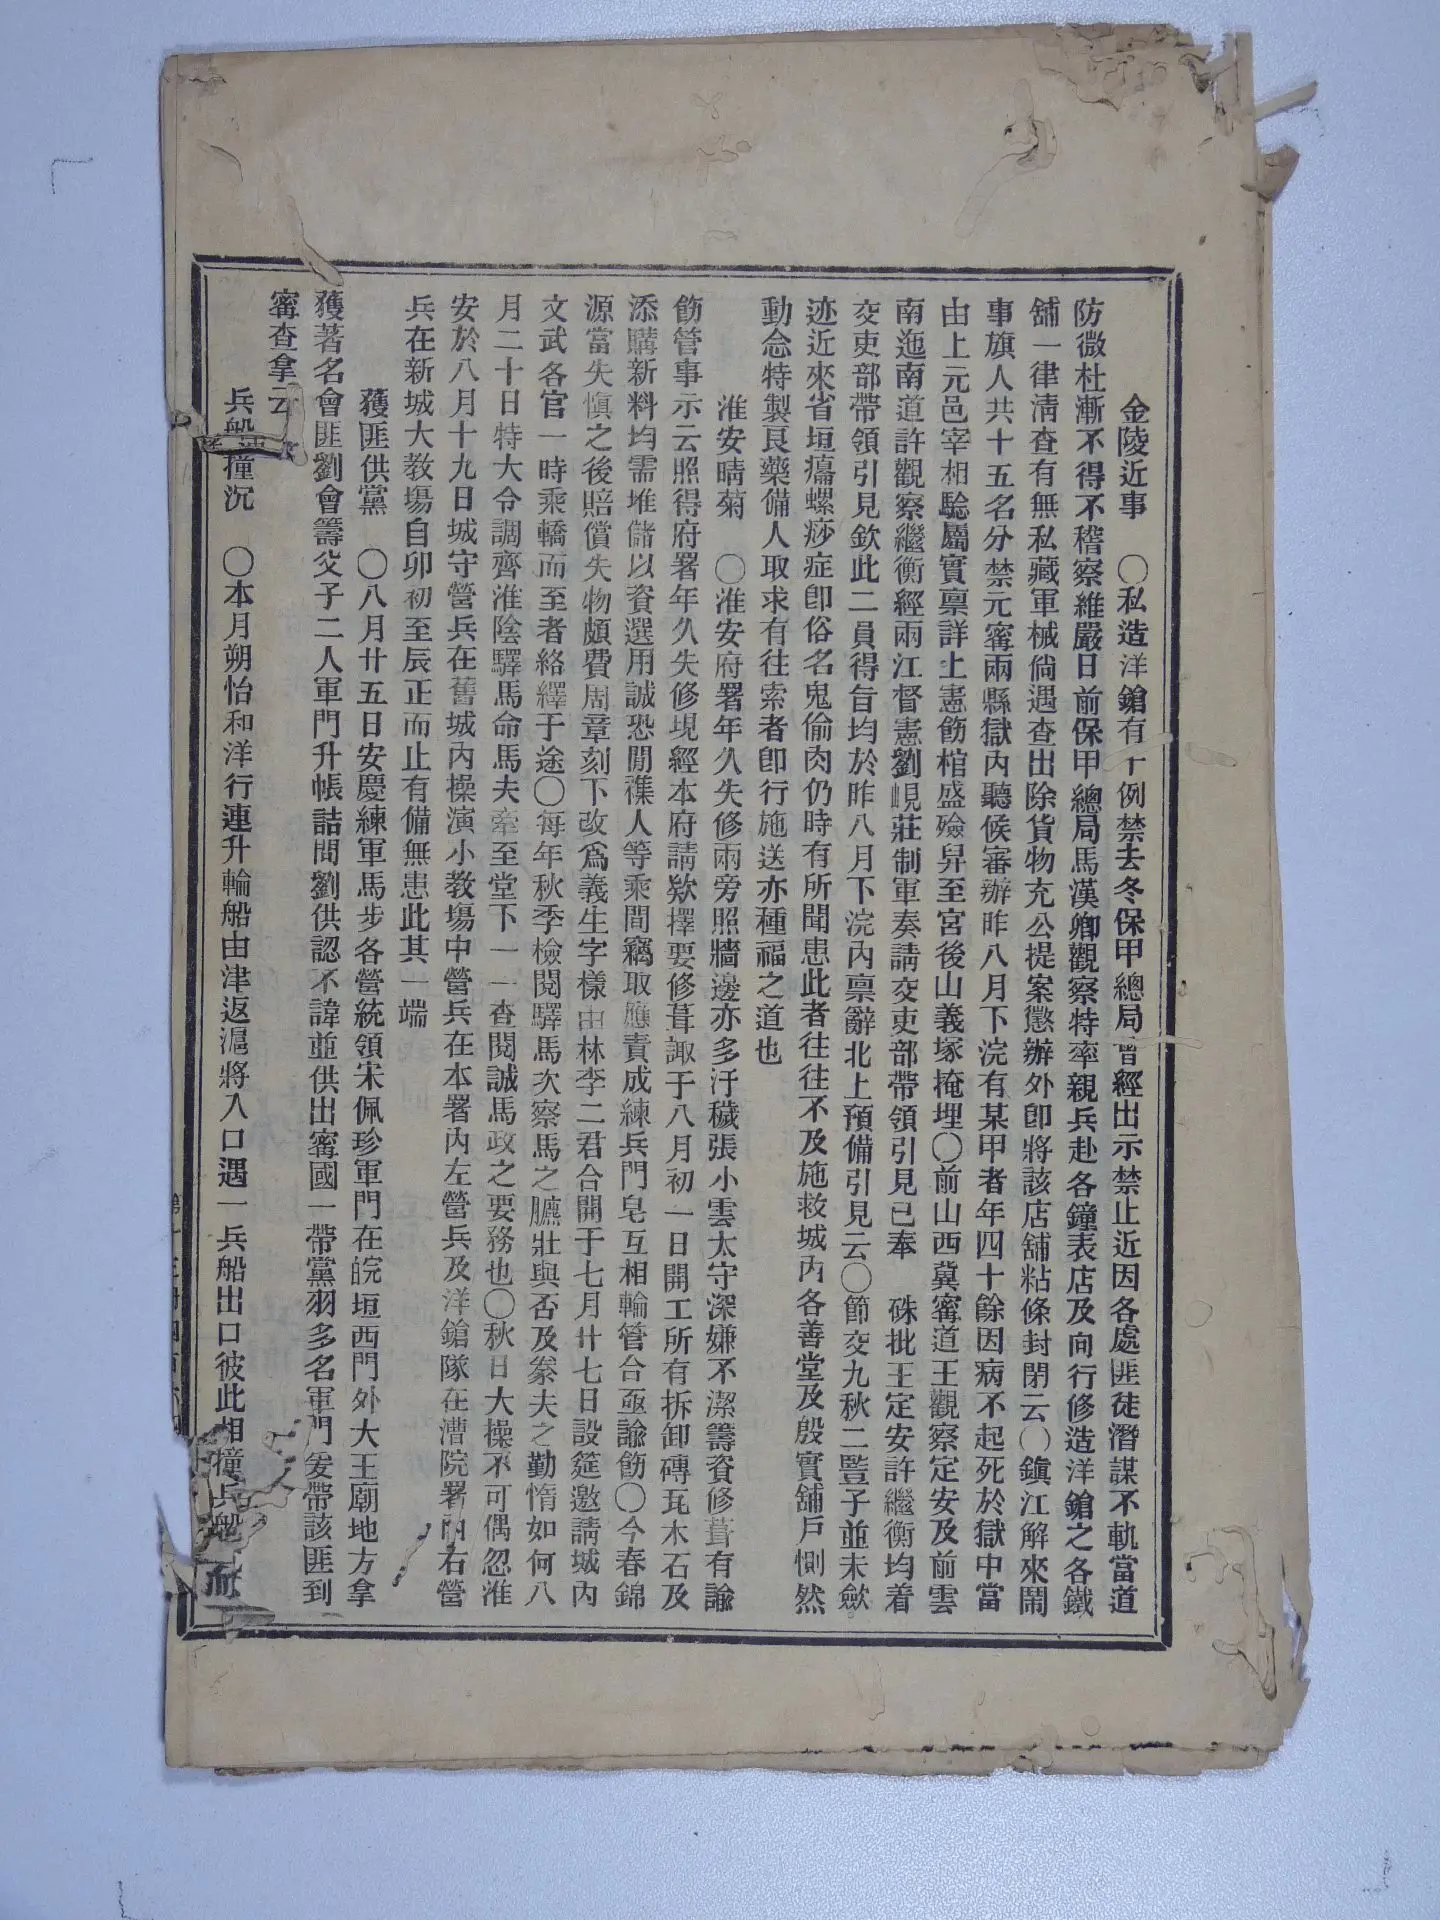 金陵近事　○私造洋鎗有干例禁去冬保甲總局曾經出示禁止近因各處匪徒潛謀不軌當道
防微杜漸不得不稽察維嚴日前保甲總局馬漢卿觀察特率親兵赴各鐘表店及向行修造洋鎗之各鐵
舖一律淸查有無私藏軍械倘遇查出除貨物充公提案懲辦外卽將該店舖粘條封閉云○鎭江解來鬧
事旗人共十五名分禁元甯兩縣獄內聽候審辦昨八月下浣有某甲者年四十餘因病不起死於獄中當
由上元邑宰相騐屬實禀詳上憲飭棺盛殮舁至宮後山義塚掩埋○前山西冀甯道王觀察定安及前雲
南迤南道許觀察繼衡經兩江督憲劉峴莊制軍奏請交吏部帶領引見已奉　硃批王定安許繼衡均着
交吏部帶領引見欽此二員得旨均於昨八月下浣內禀辭北上預備引見云○節交九秋二豎子並未歛
迹近來省垣癟螺痧症卽俗名鬼偷肉仍時有所聞患此者往往不及施救城內各善堂及殷實舖戶惻然
動念特製良藥備人取求有往索者卽行施送亦種福之道也
淮安晴菊　○淮安府署年久失修兩旁照牆邊亦多汙穢張小雲太守深嫌不潔籌資修葺有諭
飭管事示云照得府署年久失修現經本府請欵擇要修葺諏于八月初一日開工所有拆卸磚瓦木石及
添購新料均需堆儲以資選用誠恐閒襍人等乘間竊取應責成練兵門皂互相輪管合亟諭飭○今春錦
源當失愼之後賠償失物頗費周章刻下改爲義生字樣由林李二君合開于七月廿七日設筵邀請城內
文武各官一時乘轎而至者絡繹于途○每年秋季檢閱驛馬次察馬之臕壯與否及豢夫之勤惰如何八
月二十日特大令調齊淮陰驛馬命馬夫牽至堂下一一查閱誠馬政之要務也○秋日大操不可偶忽淮
安於八月十九日城守營兵在舊城內操演小教塲中營兵在本署內左營兵及洋鎗隊在漕院署內右營
兵在新城大教塲自卯初至辰正而止有備無患此其一端
獲匪供黨　○八月廿五日安慶練軍馬步各營統領宋佩珍軍門在皖垣西門外大王廟地方拿
獲著名會匪劉會籌父子二人軍門升帳詰問劉供認不諱並供出甯國一帶黨羽多名軍門爰帶該匪到
甯查拿云
兵船撞沉　○本月朔怡和洋行連升輪船由津返滬將入口遇一兵船出口彼此相撞兵船